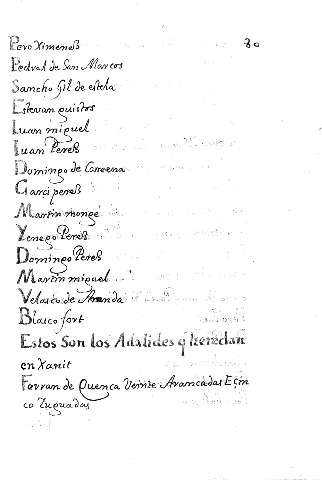 80
Pero Ximeneß
Pedral de San Marcos
Sancho Gil de estela
Estevan quistos
Iuan miguel
Iuan Pereß
Domingo de Carcena
Garci pereß
Martin monge
Yenego Pereß
Domingo Pereß
Martin miguel
Velasco de Aranda
Blasco fort
Estos Son los Adalides q heredan
en Xanit
Ferran de Quenca Veinte Arancadas E çin
co Zuguadas